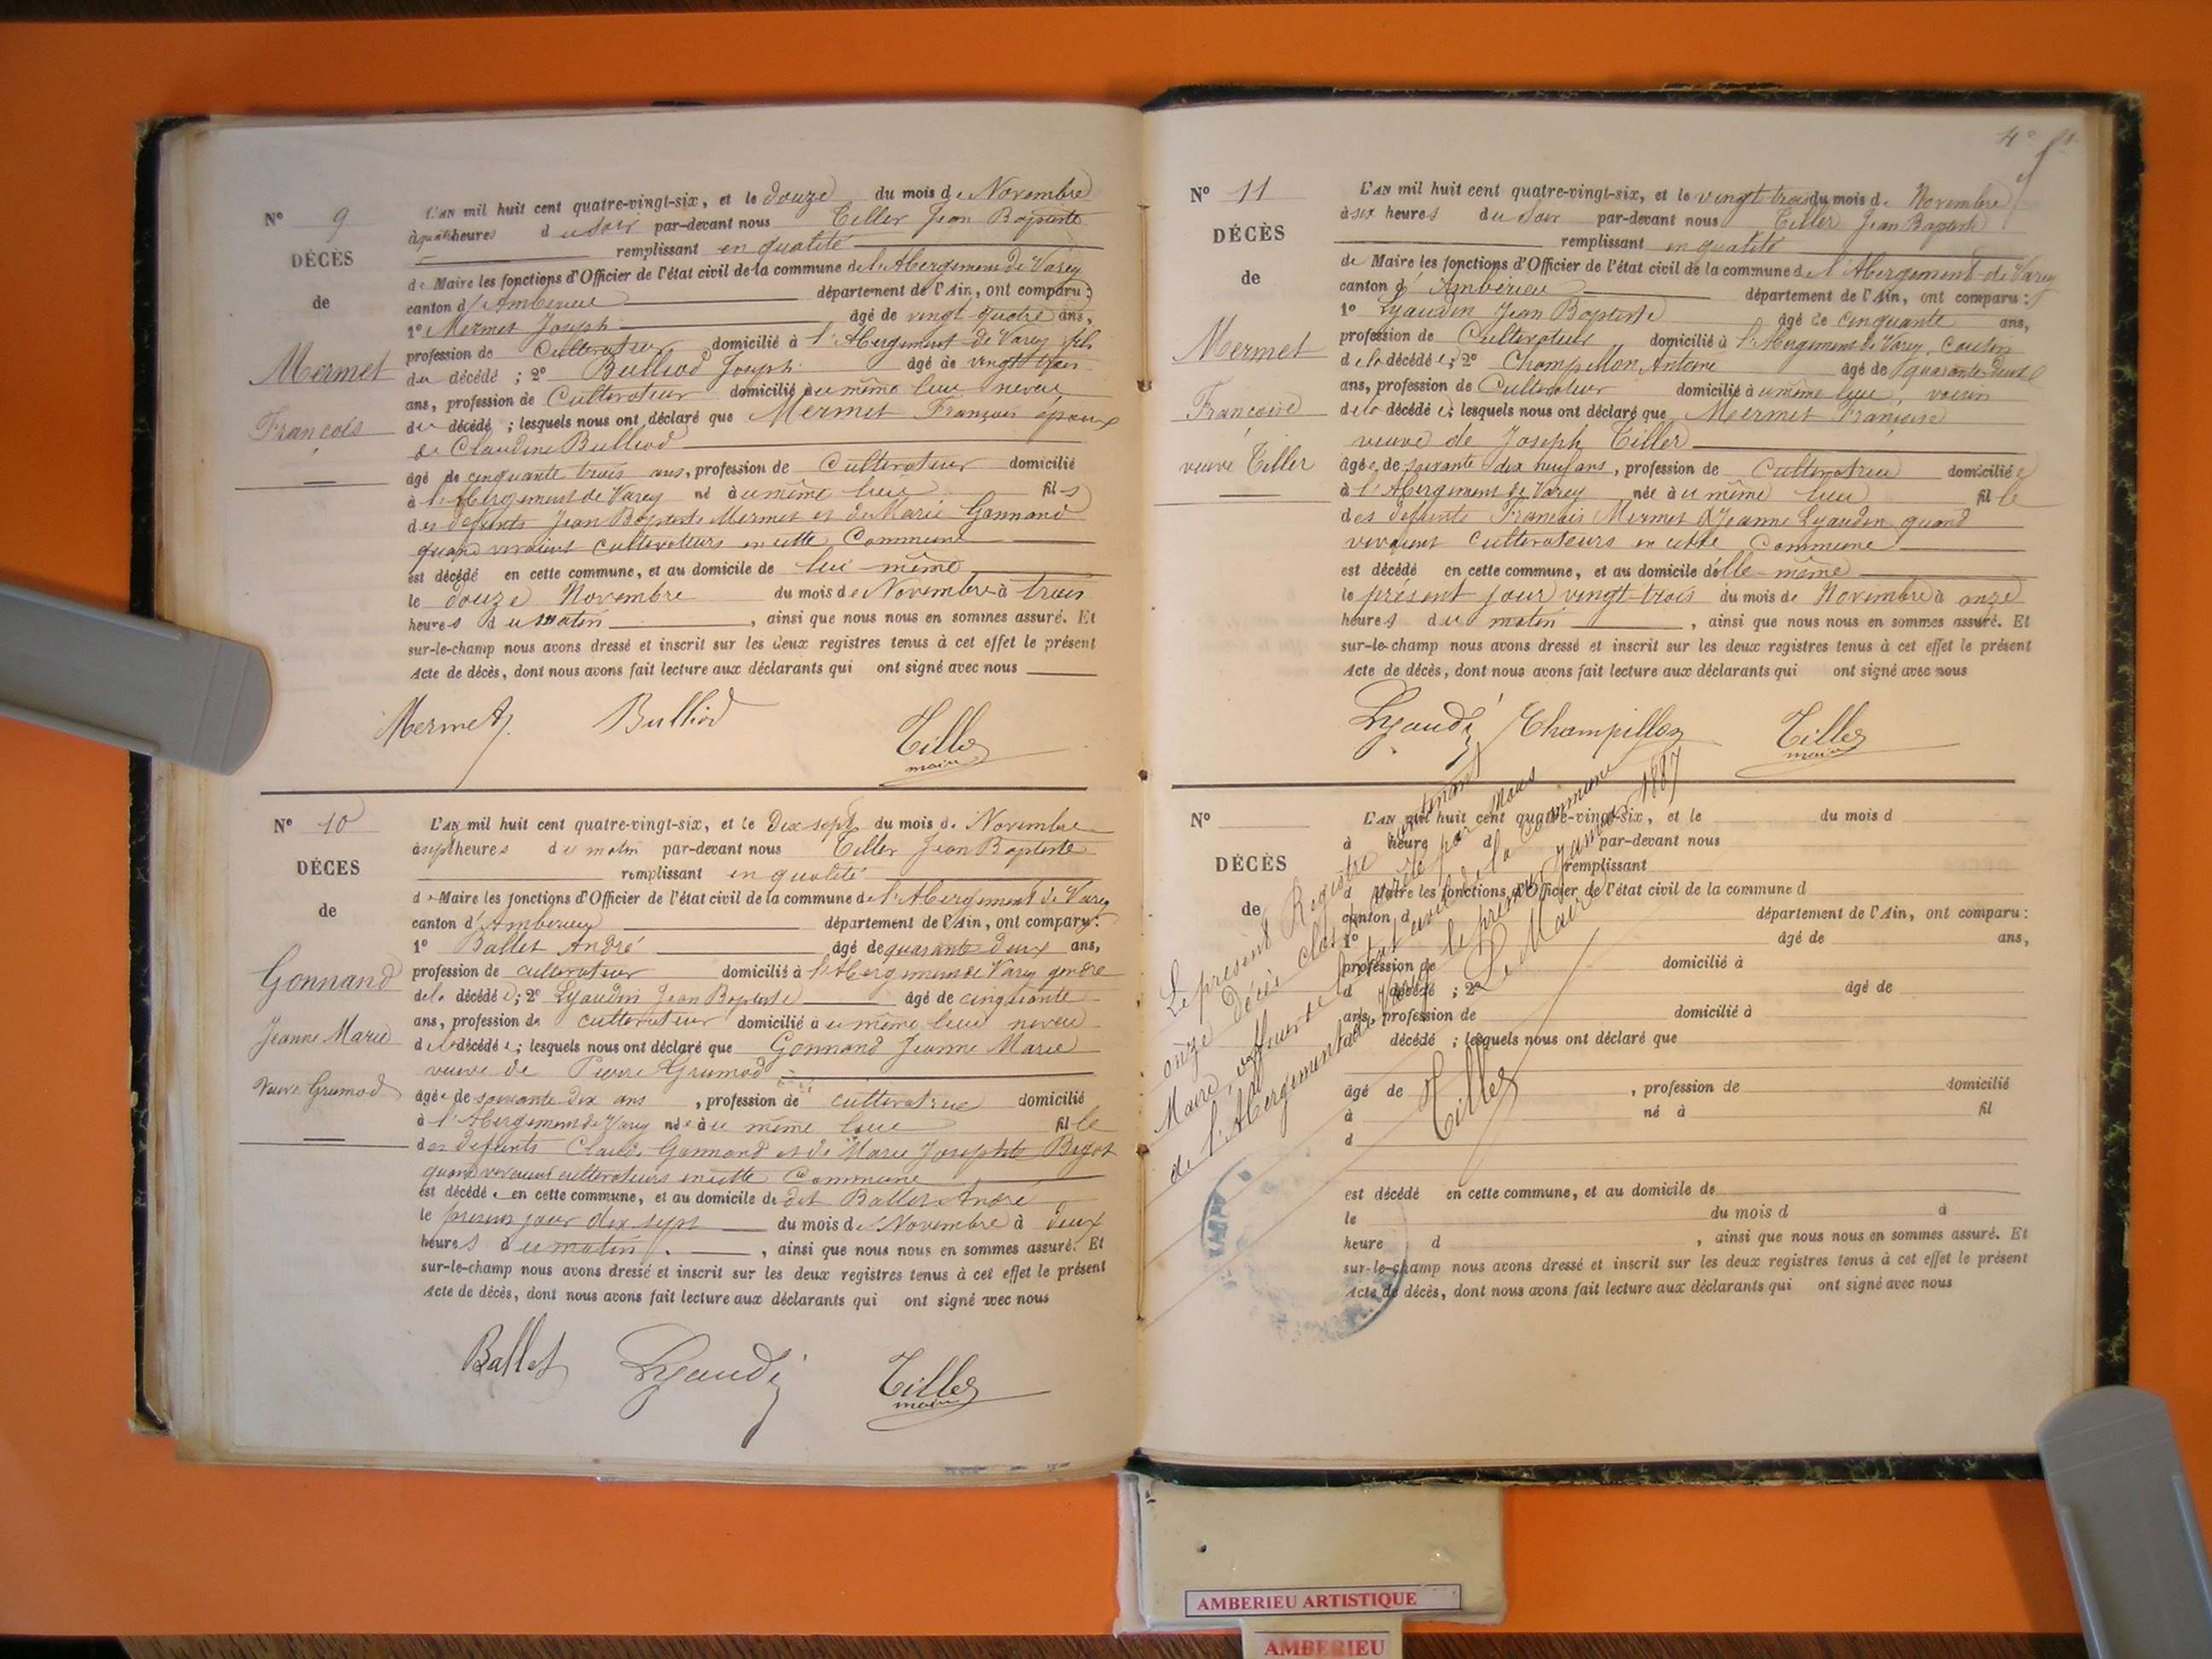 N° 9
DÉCÈS
de
Mermet
François
L'AN mil huit cent quatre-vingt-six, et le douze du mois de Novembre
à quatre heures du soir par-devant nous Tiller Jean Baptiste
remplissant en qualité
de Maire les fonctions d'Officier de l'état civil de la commune de l'Abergement de Varey
canton d'Ambérieu département de l'Ain, ont comparu :
1° Mermet Joseph âgé de vingt quatre ans,
profession de Cultivateur domicilié à l'Abergement de Varey fils
du décédé ; 2° Bulliod Joseph âgé de vingt trois
ans, profession de Cultivateur domicilié au même lieu neveu
du décédé ; lesquels nous ont déclaré que Mermet François époux
de Claudine Bulliod
âgé de cinquante trois ans, profession de Cultivateur domicilié
à l'Abergement de Varey né au même lieu fils
des défunts Jean Baptiste Mermet et de Marie Gonnand
quand vivaient cultivateurs en cette Commune
est décédé en cette commune, et au domicile de lui-même
le douze Novembre du mois de Novembre à trois
heures du matin, ainsi que nous nous en sommes assuré. Et
sur-le-champ nous avons dressé et inscrit sur les deux registres tenus à cet effet le présent
Acte de décès, dont nous avons fait lecture aux déclarants qui ont signé avec nous
Mermet J. Bulliod Tiller
maire
N° 10
DÉCES
de
Gonnand
Jeanne Marie
Veuve Grumod
L'AN mil huit cent quatre-vingt-six, et le Dix sept du mois de Novembre
à sept heures du matin par-devant nous Tiller Jean Baptiste
remplissant en qualité
de Maire les fonctions d'Officier de l'état civil de la commune de l'Abergement de Varey
canton d'Ambérieu département de l'Ain, ont comparu :
1° Ballet André âgé de quarante deux ans,
profession de cultivateur domicilié à l'Abergement de Varey gendre
de la décédée ; 2° Lyaudin Jean Baptiste âgé de cinquante
ans, profession de cultivateur domicilié au même lieu neveu
de la décédée ; lesquels nous ont déclaré que Gonnand Jeanne Marie
veuve de Pierre Grumod
âgée de soixante dix ans, profession de cultivatrice domicilié
à l'Abergement de Varey née au même lieu fille
des défunts Claude Gonnand et de Marie Josephte Bigot
quand vivaient cultivateurs en cette Commune
est décédée en cette commune, et au domicile de dit Ballet André
le présent jour dix sept du mois de Novembre à deux
heures du matin, ainsi que nous nous en sommes assuré. Et
sur-le-champ nous avons dressé et inscrit sur les deux registres tenus à cet effet le présent
Acte de décès, dont nous avons fait lecture aux déclarants qui ont signé avec nous
Ballet Lyaudi Tiller
maire
4°
N° 11
DÉCÈS
de
Mermet
Françoise
veuve Tiller
L'AN mil huit cent quatre-vingt-six, et le vingt-trois du mois de Novembre
à six heures du soir par-devant nous Tiller Jean Baptiste
remplissant en qualité
de Maire les fonctions d'Officier de l'état civil de la commune de l'Abergement-de Varey
canton d'Ambérieu département de l'Ain, ont comparu :
1° Lyaudin Jean Baptiste âgé de Cinquante ans,
profession de Cultivateur domicilié à l'Abergement de Varey, cousin
de la décédée ; 2° Champillon Antoine âgé de quarante-deux
ans, profession de Cultivateur domicilié au même lieu, voisin
de la décédée ; lesquels nous ont déclaré que Mermet Françoise
veuve de Joseph Tiller
âgée de soixante dix neuf ans, profession de Cultivatrice domiciliée
à l'Abergement de Varey née au même lieu fille
des défunts François Mermet & Jeanne Lyaudin quand
vivaient Cultivateurs en cette Commune
est décédé en cette commune, et au domicile d'elle-même
le présent jour vingt-trois du mois de Novembre à onze
heures du matin, ainsi que nous nous en sommes assuré. Et
sur-le-champ nous avons dressé et inscrit sur les deux registres tenus à cet effet le présent
Acte de décès, dont nous avons fait lecture aux déclarants qui ont signé avec nous
Lyaudi Champillon Tiller
maire
N°
DÉCÈS
de
L'AN mil huit cent quatre-vingt-six, et le du mois d
à heure d par-devant nous
remplissant
d Maire les fonctions d'Officier de l'état civil de la commune d
canton d département de l'Ain, ont comparu :
1° âgé de ans,
profession de domicilié à
d décédé ; 2° âgé de
ans, profession de domicilié à
d décédé ; lesquels nous ont déclaré que
âgé de , profession de domicilié
à né à fil
d
est décédé en cette commune, et au domicile de
le du mois d à
heure d , ainsi que nous nous en sommes assuré. Et
sur-le-champ nous avons dressé et inscrit sur les deux registres tenus à cet effet le présent
Acte de décès, dont nous avons fait lecture aux déclarants qui ont signé avec nous
Le présent Registre contenant
onze décès clos et arrêté par Nous
Maire, officier de l'état civil de la Commune
de l'Abergement de Varey le premier Janvier 1887
Le Maire
Tiller
AMBERIEU ARTISTIQUE
AMBERIEU